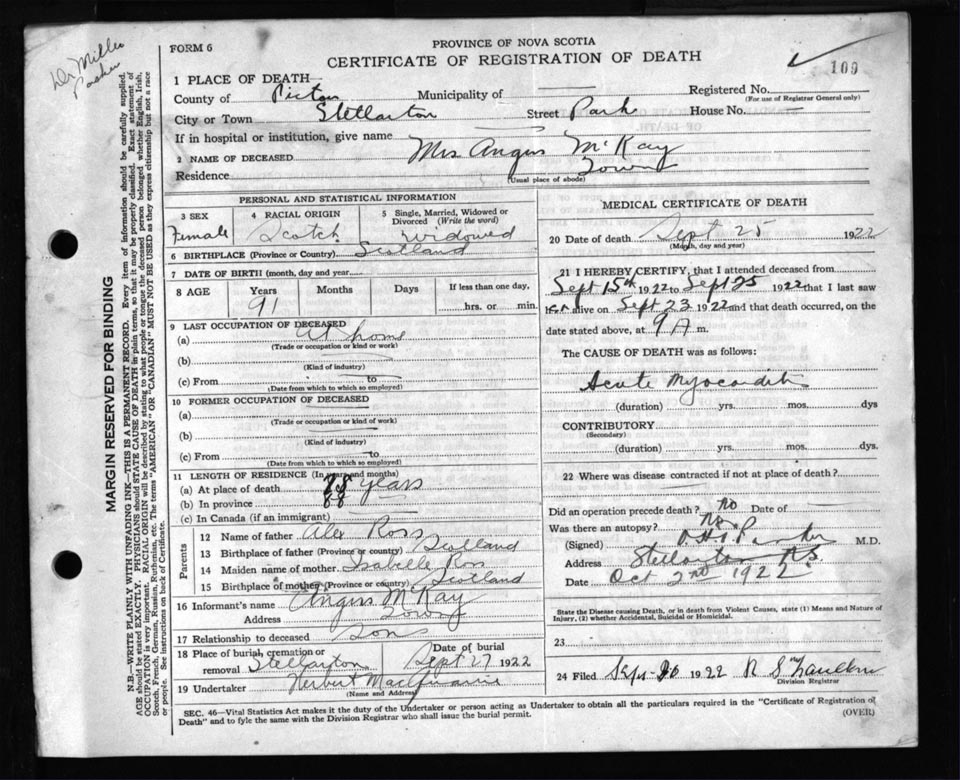 Dr Miller
Parker
FORM 6
PROVINCE OF NOVA SCOTIA
CERTIFICATE OF REGISTRATION OF DEATH
100
1 PLACE OF DEATH—
County of Pictou Municipality of — Registered No.
(For use of Registrar General only)
City or Town Stellarton Street Park House No. —
If in hospital or institution, give name —
2 NAME OF DECEASED Mrs Angus McKay
Residence Town
(Usual place of abode)
PERSONAL AND STATISTICAL INFORMATION
3 SEX
Female
4 RACIAL ORIGIN
Scotch
5 Single, Married, Widowed or Divorced (Write the word)
Widowed
6 BIRTHPLACE (Province or Country) Scotland
7 DATE OF BIRTH (month, day and year
8 AGE Years Months Days If less than one day,
91 hrs. or min.
9 LAST OCCUPATION OF DECEASED
(a) At home
(Trade or occupation or kind or work)
(b)
(Kind of industry)
(c) From to
(Date from which to which so employed)
10 FORMER OCCUPATION OF DECEASED
(a)
(Trade or occupation or kink of work)
(b)
(Kind of industry)
(c) From to
(Date from which to which so employed)
11 LENGTH OF RESIDENCE (In years and months)
(a) At place of death 88 years
(b) In province 88
(c) In Canada (if an immigrant)
Parents
12 Name of father Alex Ross
13 Birthplace of father (Province or country) Scotland
14 Maiden name of mother Isabelle Ross
15 Birthplace of mother (Province or country) Scotland
16 Informant's name Angus McKay
Address Town
17 Relationship to deceased Son
18 Place of burial, cremation or removal Stellarton Date of burial Sept 27 1922
19 Undertaker Herbert
(Name and Address)
MEDICAL CERTIFICATE OF DEATH
20 Date of death Sept 25 1922
(Month, day and year)
21 I HEREBY CERTIFY, that I attended deceased from
Sept 15th 1922 to Sept 25 1922 that I last saw
her alive on Sept 23 1922 and that death occurred, on the
date stated above, at 9 A m.
The CAUSE OF DEATH was as follows:
Acute Myocarditis
(duration) yrs. mos. dys
CONTRIBUTORY
(Secondary)
(duration) yrs. mos. dys.
22 Where was disease contracted if not at place of death?
Did an operation precede death? no Date of —
Was there an autopsy? no
(Signed) Parker M.D.
Address Stellarton N.S.
Date Oct 2nd 1922
State the Disease causing Death, or in death from Violent Causes, state (1) Means and Nature of
Injury, (2) whether Accidental, Suicidal or Homicidal.
23
24 Filed Sept 1922
Division Registrar
SEC. 46—Vital Statistics Act makes it the duty of the Undertaker or person acting as Undertaker to obtain all the particulars required in the "Certificate of Registration of
Death" and to fyle the same with the Division Registrar who shall issue the burial permit.
(OVER)
MARGIN RESERVED FOR BINDING
N.B.—WRITE PLAINLY WITH UNFADING INK—THIS IS A PERMANENT RECORD. Every item of information should be carefully supplied.
AGE should be stated EXACTLY. PHYSICIANS should STATE CAUSE OF DEATH in plain terms, so that it may be properly classified. Exact statement of
OCCUPATION is very important. RACIAL ORIGIN will be described by stating to what people or tongue the deceased person belonged whether English, Irish,
Scotch, French, German, Russian, Ruthenian, etc. The terms "AMERICAN" OR "CANADIAN" MUST NOT BE USED as they express citizenship but not a race
or people. See instructions on back of Certificate.